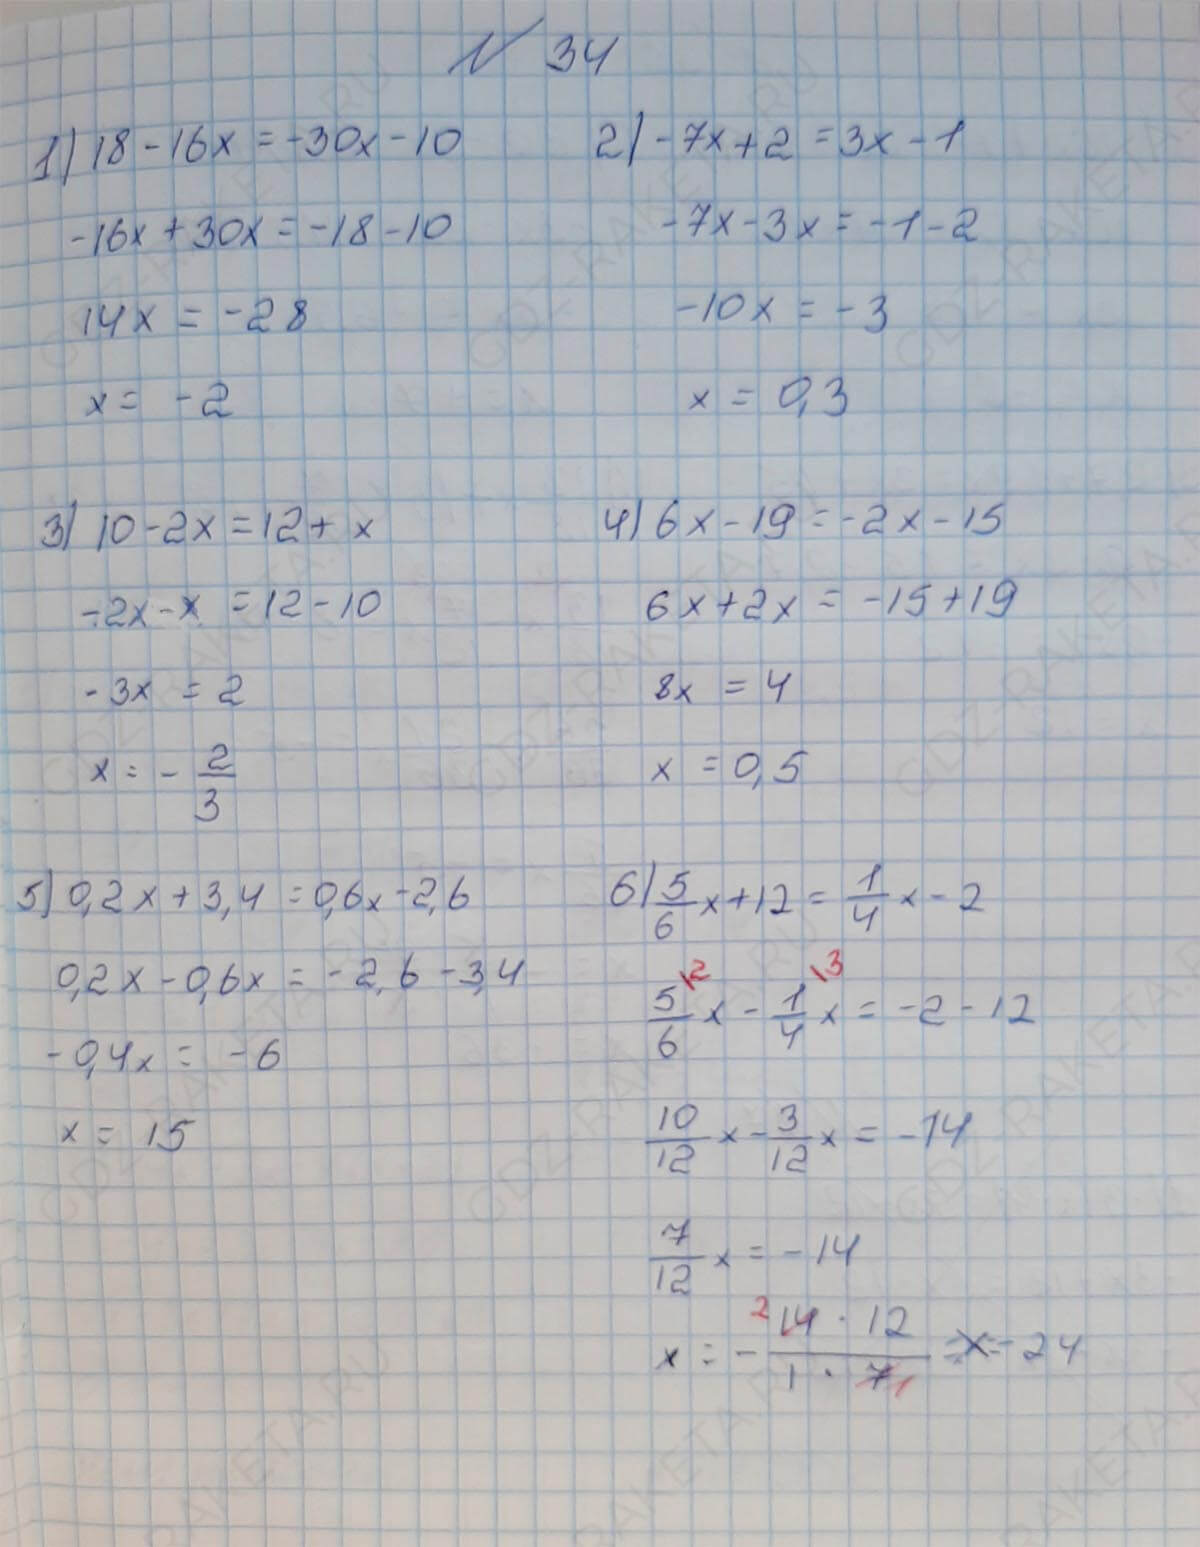 № 34
1) 18 - 16x = -30x - 10
-16x + 30x = -18 - 10
14x = -28
x = -2
2) -7x + 2 = 3x - 1
-7x - 3x = -1 - 2
-10x = -3
x = 0,3
3) 10 - 2x = 12 + x
-2x - x = 12 - 10
-3x = 2
x = - 2/3
4) 6x - 19 = -2x - 15
6x + 2x = -15 + 19
8x = 4
x = 0,5
5) 0,2x + 3,4 = 0,6x - 2,6
0,2x - 0,6x = -2,6 - 3,4
-0,4x = -6
x = 15
6) 5/6 x + 12 = 1/4 x - 2
5/6 \2 x - 1/4 \3 x = -2 - 12
10/12 x - 3/12 x = -14
7/12 x = -14
x = - 2 14 · 12 / 1 · 7 1 = x = -24
GDZ-RAKETA.RU